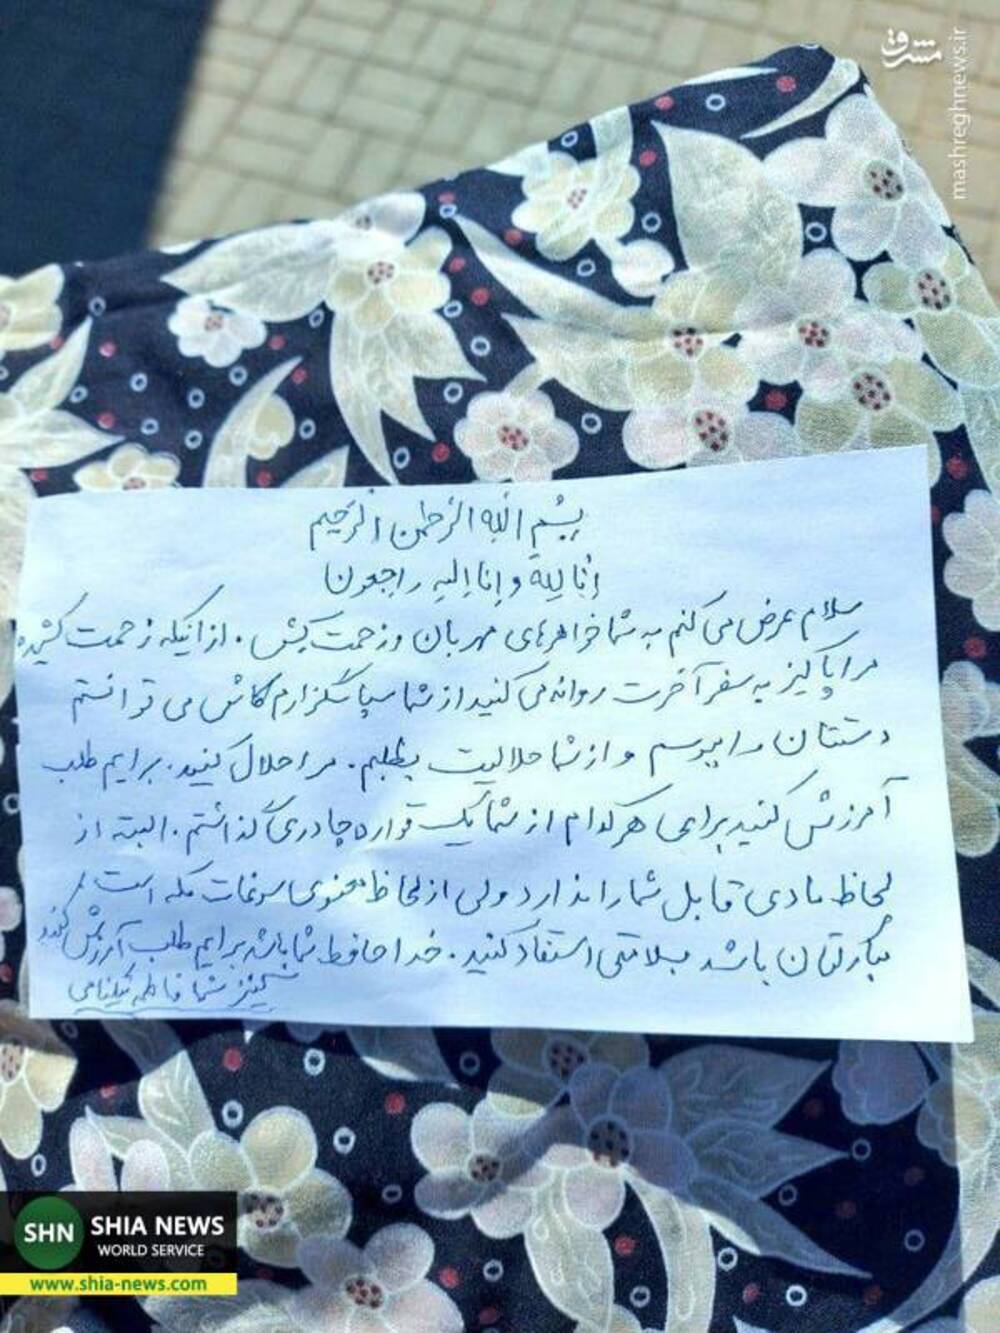 مشرق
mashreghnews.ir
بِسْمِ اللهِ الرَّحمنِ الرَّحیم
اِنّا لِلّهِ و اِنا اِلیهِ راجعون
سلام عرض می کنم به شما خواهرهای مهربان و زحمت کش. از اینکه زحمت کشیده
مرا پاکیزه به سفر آخرت روانه می کنید از شما سپاسگزارم کاش می توانستم
دستتان را ببوسم و از شما حلالیت بطلبم. مرا حلال کنید. برایم طلب
آمرزش کنید برای هر کدام از شما یک قواره چادری گذاشتم. البته از
لحاظ مادی قابل شما را ندارد ولی از لحاظ معنوی سوغات مکه است
مبارکتان باشد بسلامتی استفاده کنید. خدا حافظ شما باشد برایم طلب آمرزش کنید
کنیز شما فاطمه نیکنامی
SHN SHIA NEWS
WORLD SERVICE
www.shia-news.com